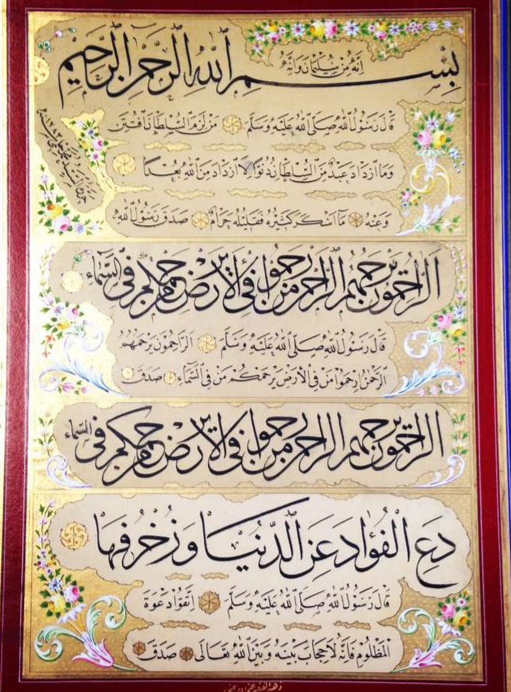 إنه من سليمان وإنه
بسم الله الرحمن الرحيم
قال رسول الله صلى الله عليه وسلم من لزم السلطان افتتن
وما ازداد عبد من السلطان دنوا إلا ازداد من الله بعدا
وعنه ما اسكر كثيره فقليله حرام صدق رسول الله
الراحمون يرحمهم الراحمن ارحموا من في الأرض يرحمكم من في السماء
قال رسول الله صلى الله عليه وسلم الراحمون يرحمهم
الرحمن ارحموا من في الأرض يرحمكم من في السماء صدق
الراحمون يرحمهم الراحمن ارحموا من في الأرض يرحمكم من في السماء
دع الفؤاد عن الدنيا وزخرفها
قال رسول الله صلى الله عليه وسلم اتقوا دعوة
المظلوم فإنه لا حجاب بينه وبين الله تعالى صدق